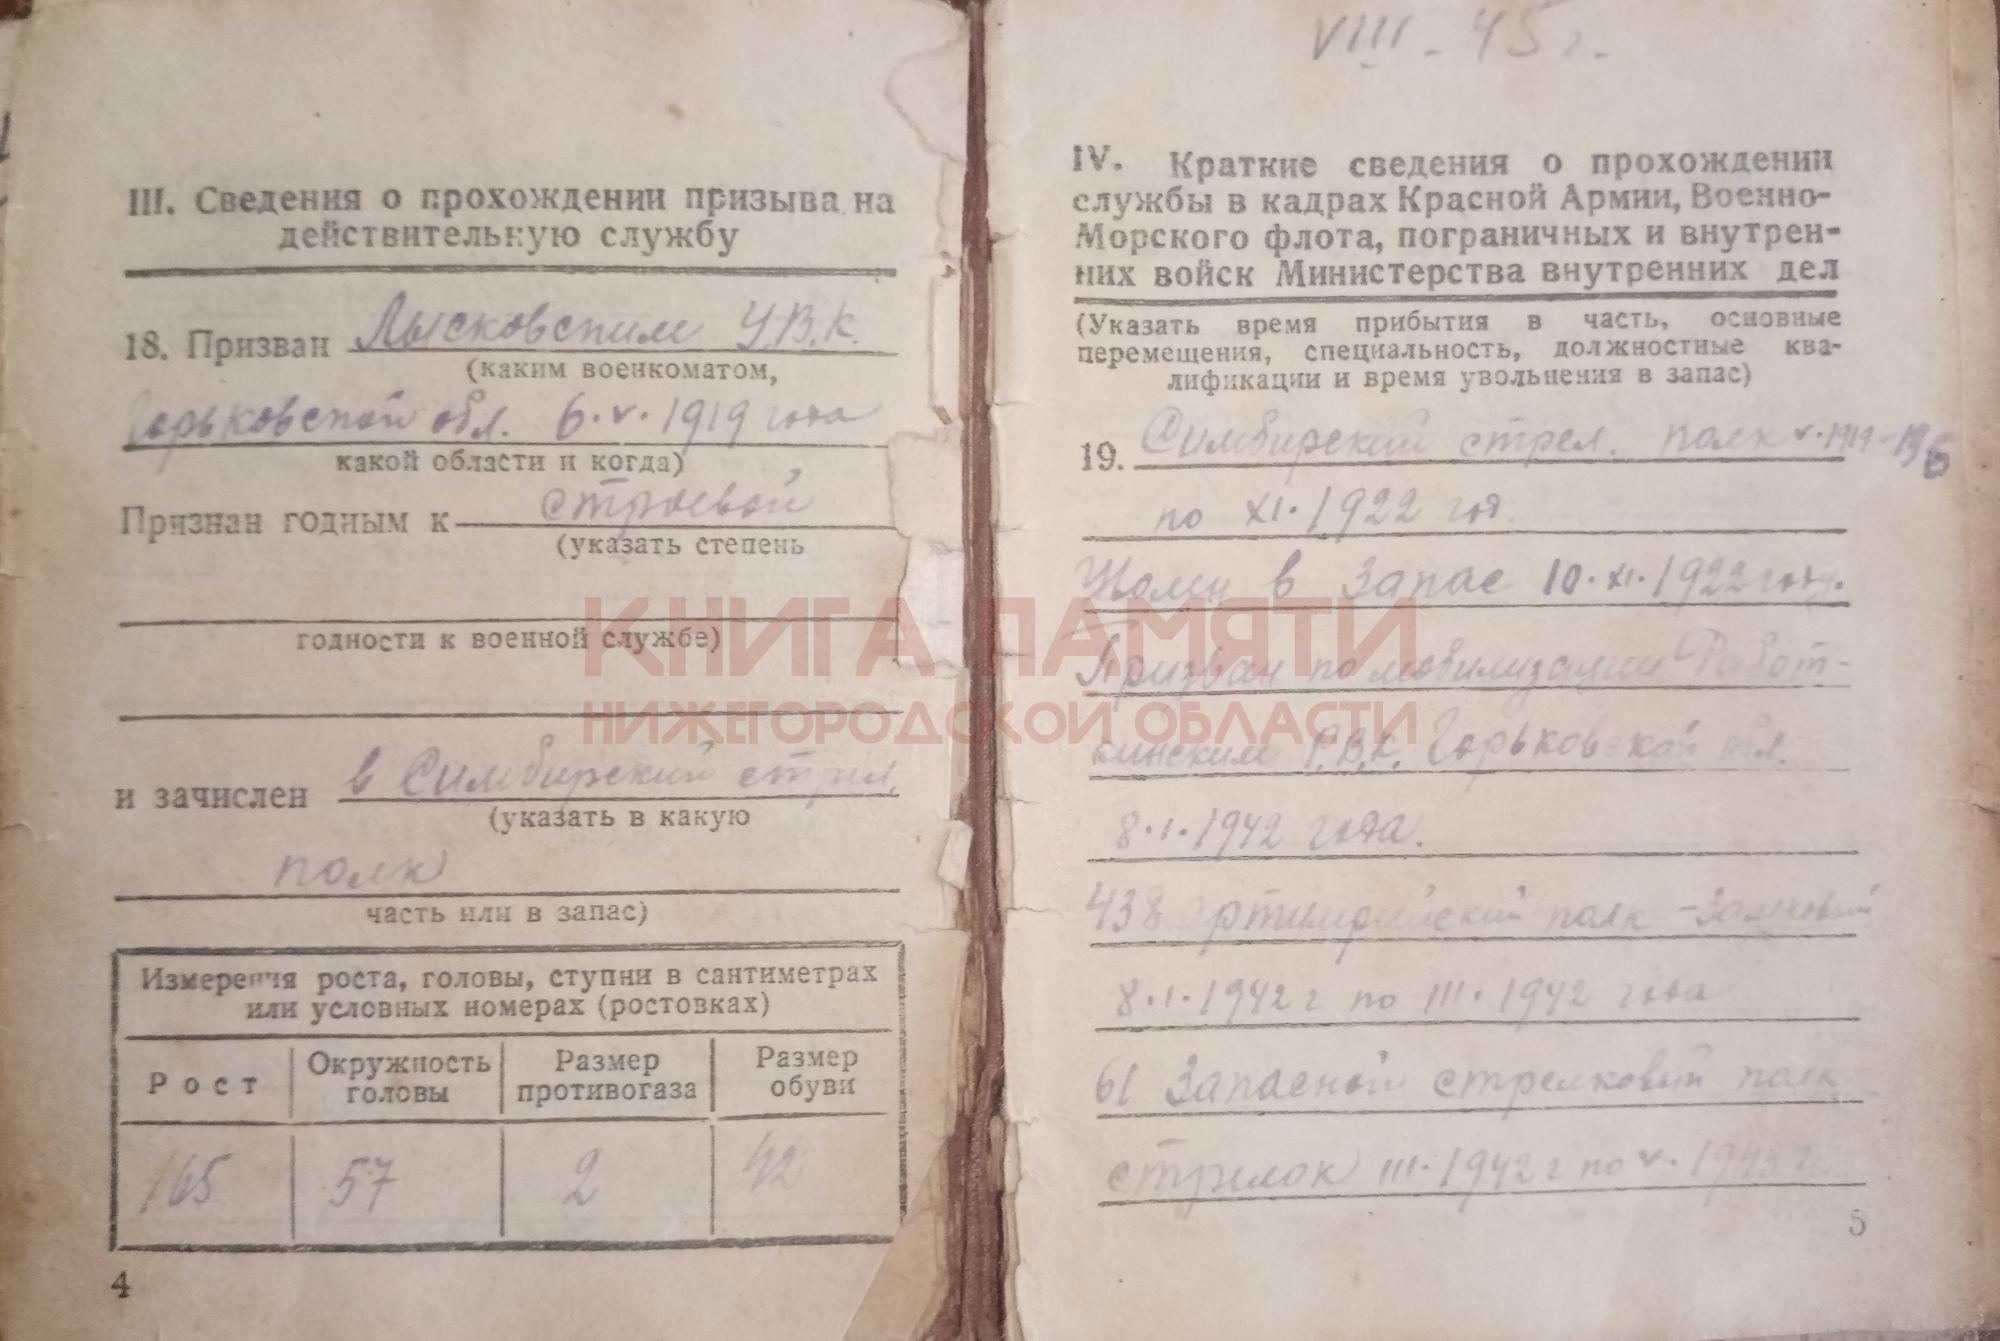 III. Сведения о прохождении призыва на
действительную службу
18. Призван Лысковским У.В.К.
(каким военкоматом,
Горьковской обл. 6.V.1919 года
какой области и когда)
Признан годным к строевой
(указать степень
годности к военной службе)
и зачислен в Симбирский стрел.
(указать в какую
полк
часть или в запас)
Измерения роста, головы, ступни в сантиметрах
или условных номерах (ростовках)
Рост
Окружность
головы
Размер
противогаза
Размер
обуви
165 57 2 42
4
VIII - 45 г.
IV. Краткие сведения о прохождении
службы в кадрах Красной Армии, Военно-
Морского флота, пограничных и внутрен-
них войск Министерства внутренних дел
(Указать время прибытия в часть, основные
перемещения, специальность, должностные ква-
лификации и время увольнения в запас)
19. Симбирский стрел. полк V.1919
по XI.1922 год.
в запас 10.XI.1922 году.
Призван по мобилизации Работ-
кинским Р.В.К. Горьковской обл.
8.I.1942 года.
438 Артиллерийский полк -
8.I.1942 г по III.1942 года
61 Запасной стрелковый полк
стрелок III.1942 г по V.1943 г.
5
КНИГА ПАМЯТИ
НИЖЕГОРОДСКОЙ ОБЛАСТИ